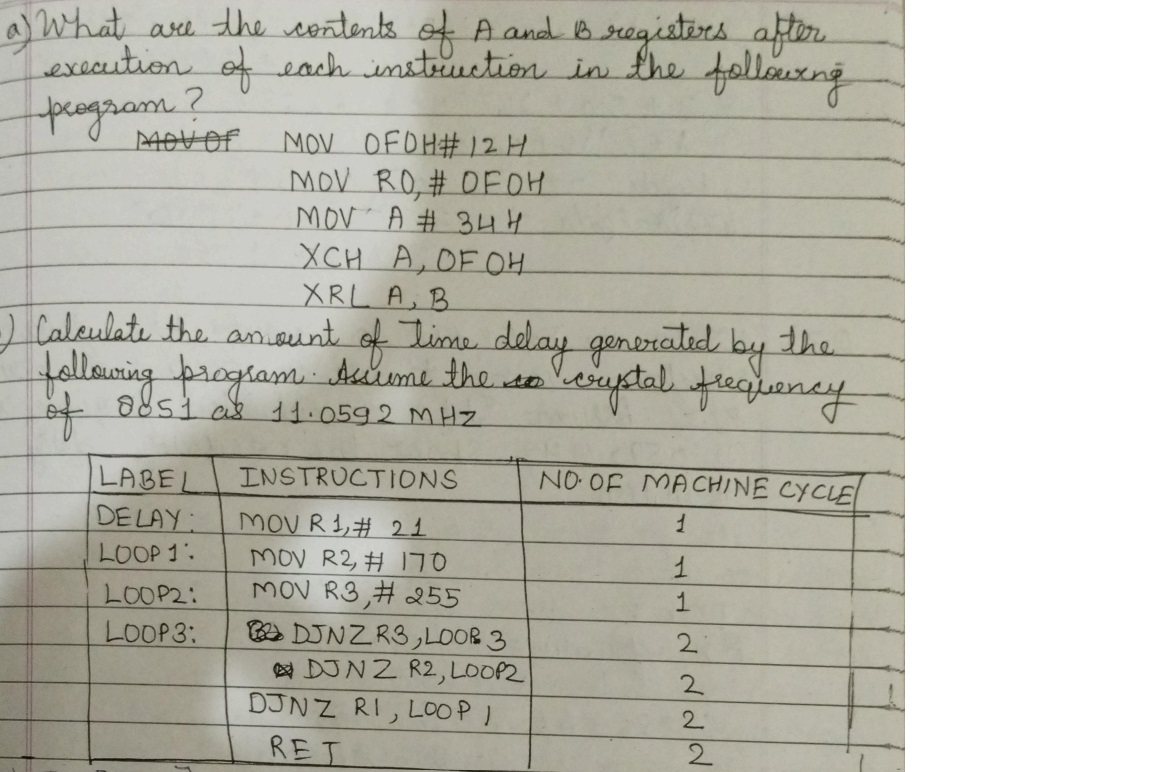 a) What are the contents of A and B registers after
execution of each instruction in the following
program?
MOV OF MOV OFOH# 12 H
MOV RO, # OFOH
MOV A # 34 H
XCH A, OFOH
XRL A, B
) Calculate the amount of time delay generated by the
following program. Assume the crystal frequency
of 8051 as 11.0592 MHZ
LABEL INSTRUCTIONS NO. OF MACHINE CYCLE
DELAY: MOV R1,# 21 1
LOOP 1: MOV R2,# 170 1
LOOP2: MOV R3,# 255 1
LOOP3: DJNZ R3, LOOP 3 2
DJNZ R2, LOOP2 2
DJNZ R1, LOOP 1 2
RET 2